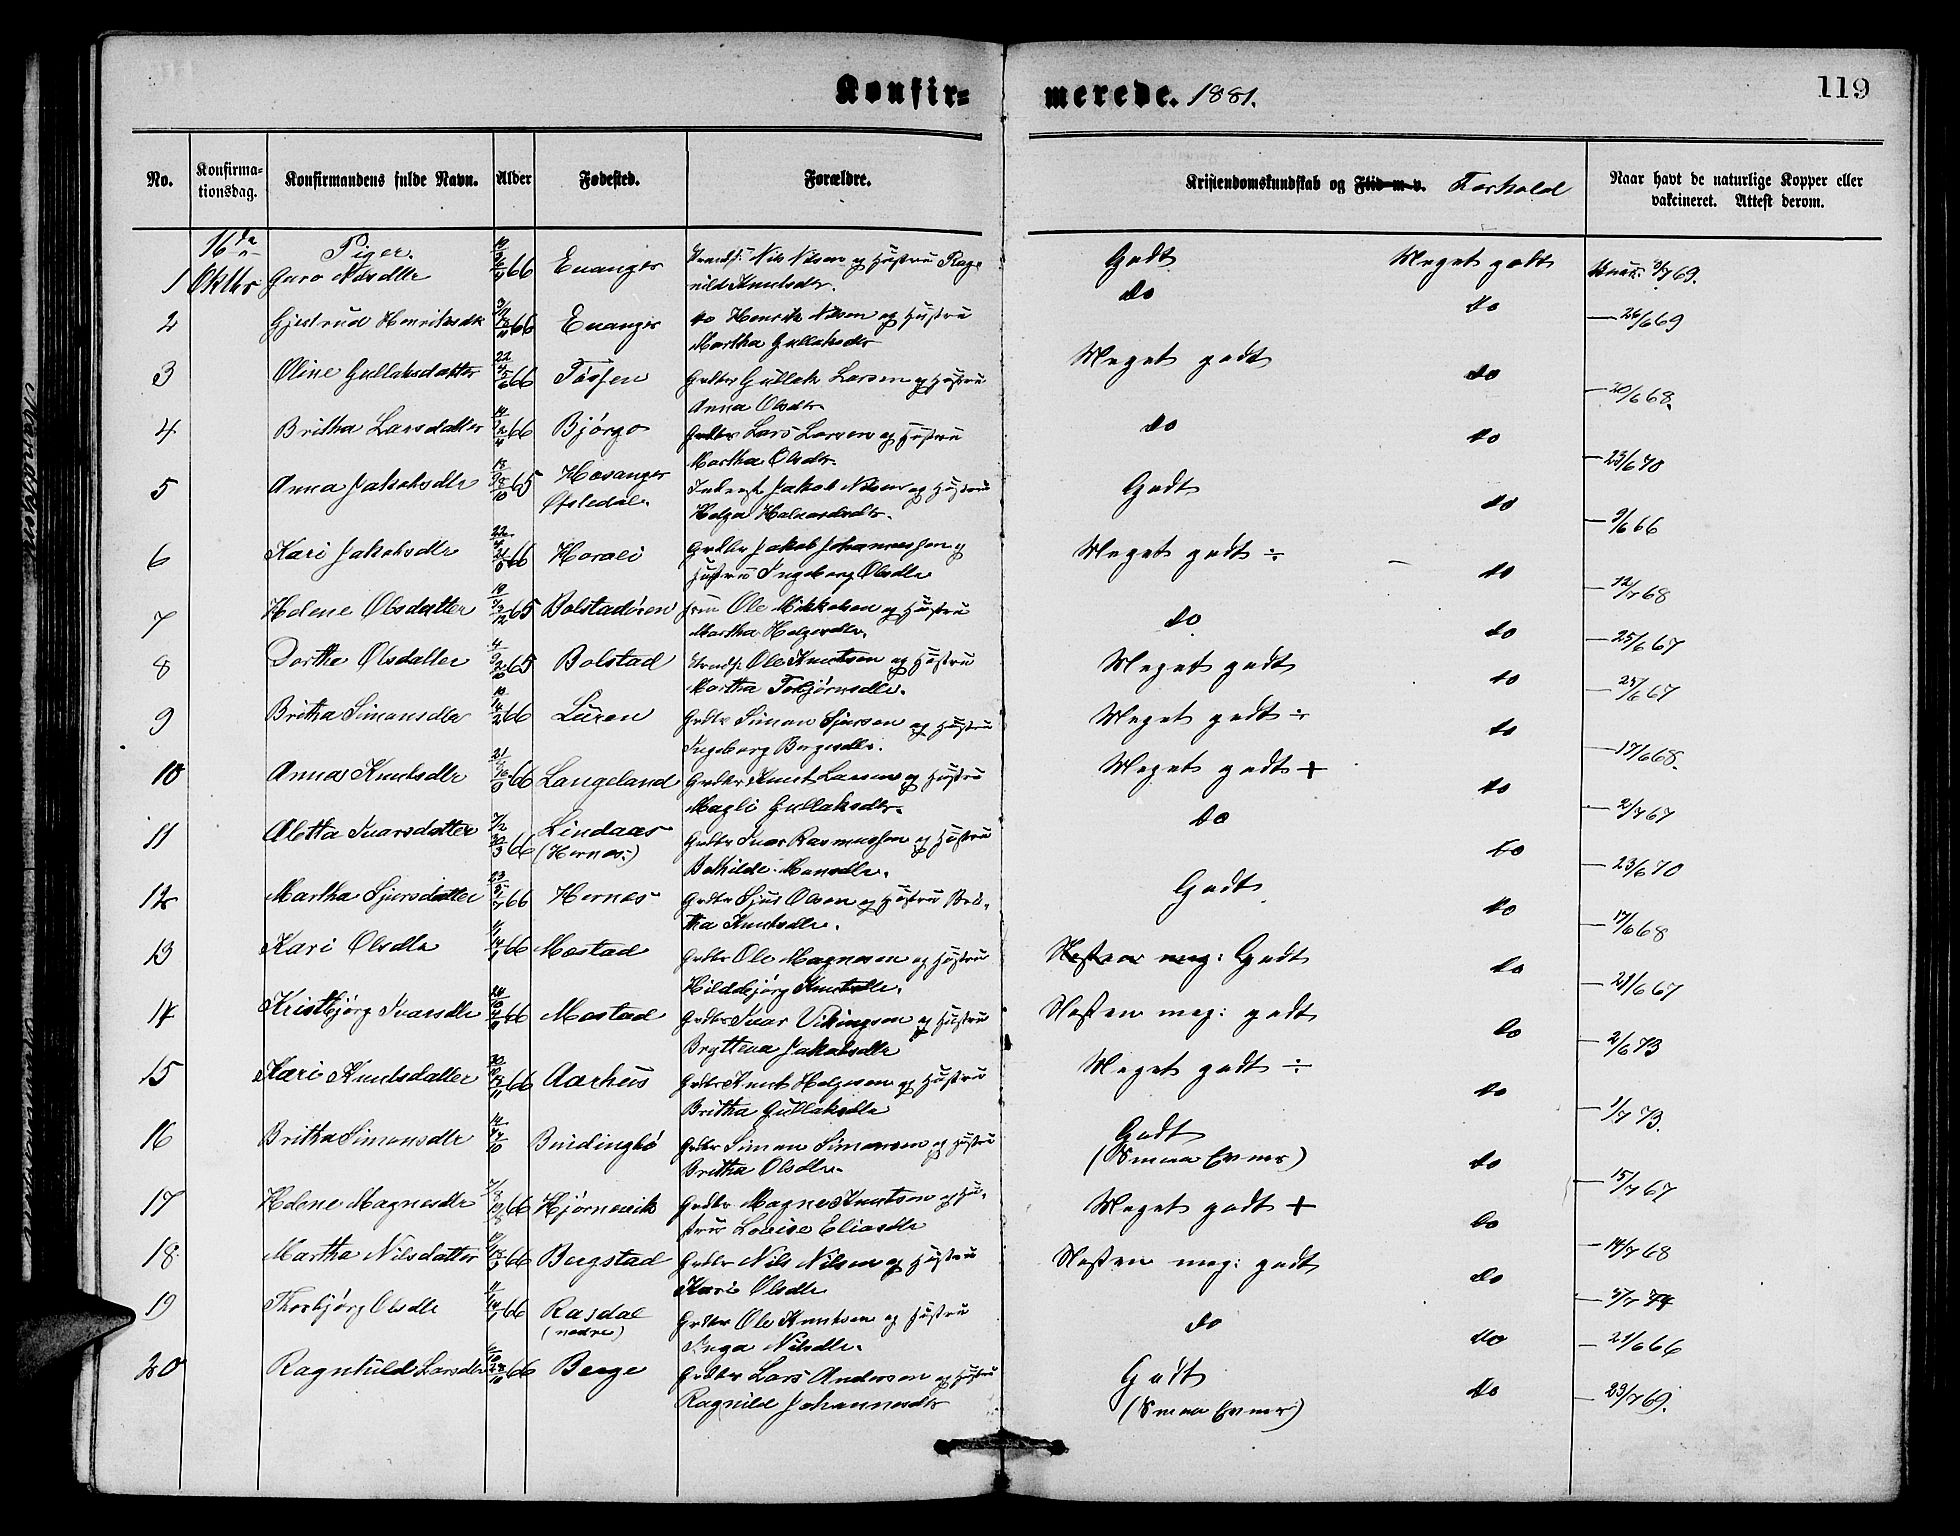 Konfir- merede. 1881. 119
No. Konfirma- Konfirmandens fulde Navn. Alder Fødested. Forældre. Kristendomskundskab og Flid m. v. Forhold Naar havt de naturlige Kopper eller
tionsdag. vakcineret. Attest derom.
16de Piger.
1 Oktbr Guro Nilsdtr 66 Evanger Nils Nilsen og Hustru Rag- Godt Meget godt 3/7 69.
nild Knutsdtr.
2 Gjertrud Henriksdtr 66 Evanger do Henrik Nilsen og Hustru do do — 26/6 69
Martha Gullaksdtr
3 Oline Gullaksdatter 22 66 Fosfen Grdbr Gullak Larsen og Hustru Meget godt do — 20/6 68.
Anna Olsdtr.
4 Britha Larsdatter 66 Bjørgo Grdbr Lars Larsen og Hustru do do — 23/6 70
Martha Olsdtr.
5 Anna Jakobsdtr 65 Hosanger Jakob Nilsen og Hustru Godt do — 9/6 66
Helga
6 Kari Jakobsdtr 66 Horvei Grdbr Jakob Johannessen og Meget godt ÷ — do — 12/7 68
Hustru Ingeborg Olsdtr
7 Helene Olsdatter 65 Bolstadøren Ole Mikkelsen og Hustru do do — 25/6 67
Martha Helgesdtr.
8 Dorthe Olsdatter 65 Bolstad Ole Knutsen og Hustru Meget godt do — 25/6 67
Martha Torbjørnsdtr.
9 Britha Simonsdtr 66 Grdbr Simon Sjursen og Hustru Meget godt ÷ do — 17/6 68.
Ingeborg Bergesdtr.
10 Anna Knutsdtr 21 66 Langeland Grdbr Knut Larsen og Hustru Meget godt + do — 2/7 67
Magli Gullaksdtr.
11 Aletta Ivarsdatter 66 Lindaas Grdbr Ivar Rasmussen og Hustru do do — 23/6 70
(Hernes) Bothilde Monsdtr.
12 Martha Sjursdatter 66 Hernes Grdbr Sjur Olsen og Hustru Bri- Godt do — 17/6 68
tha Knutsdtr.
13 Kari Olsdtr 66 Mostad Grdbr Ole Magnesen og Hustru Næsten meg: Godt do — 21/6 67
Hildebjørg Knutsdtr.
14 Kristbjørg Ivarsdtr 66 Mostad Grdbr Ivar Vikingsen og Hustru Næsten meg: godt do — 2/6 73
Brytteva Jakobsdtr
15 Kari Knutsdatter 66 Aarhus Grdbr Knut Helgesen og Hustru Meget godt ÷ do — 1/7 73.
Britha Gullaksdtr
16 Britha Simonsdtr Grdbr Simon Simonsen og Hustru Godt do — 15/7 67
Britha Olsdtr. (Smaa Evner)
17 Helene Magnesdtr 66 Hjørnevik Grdbr Magne Knutsen og Hu- Meget godt + do — 14/7 68
stru Lovise Eliasdtr
18 Martha Nilsdatter 66 Bergstad Grdbr Nils Nilsen og Hustru Næsten meg: godt do — 3/7 74
Kari Olsdtr
19 Thorbjørg Olsdtr 66 Rasdal Grdbr Ole Knutsen og Hustru do do — 21/6 66
(nedre) Inga Nilsdtr.
20 Ragnhild Larsdtr 66 Berge Grdbr Lars Andersen og Hustru Godt do — 23/7 69.
Ragnild Johannesdtr (Smaa Evner)